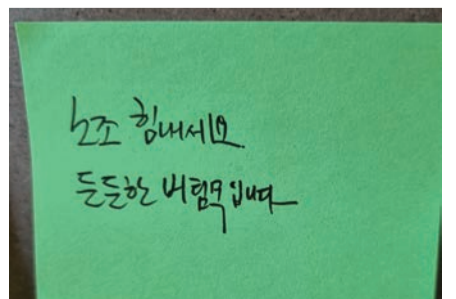 노조 힘내세요
든든한 버팀목입니다